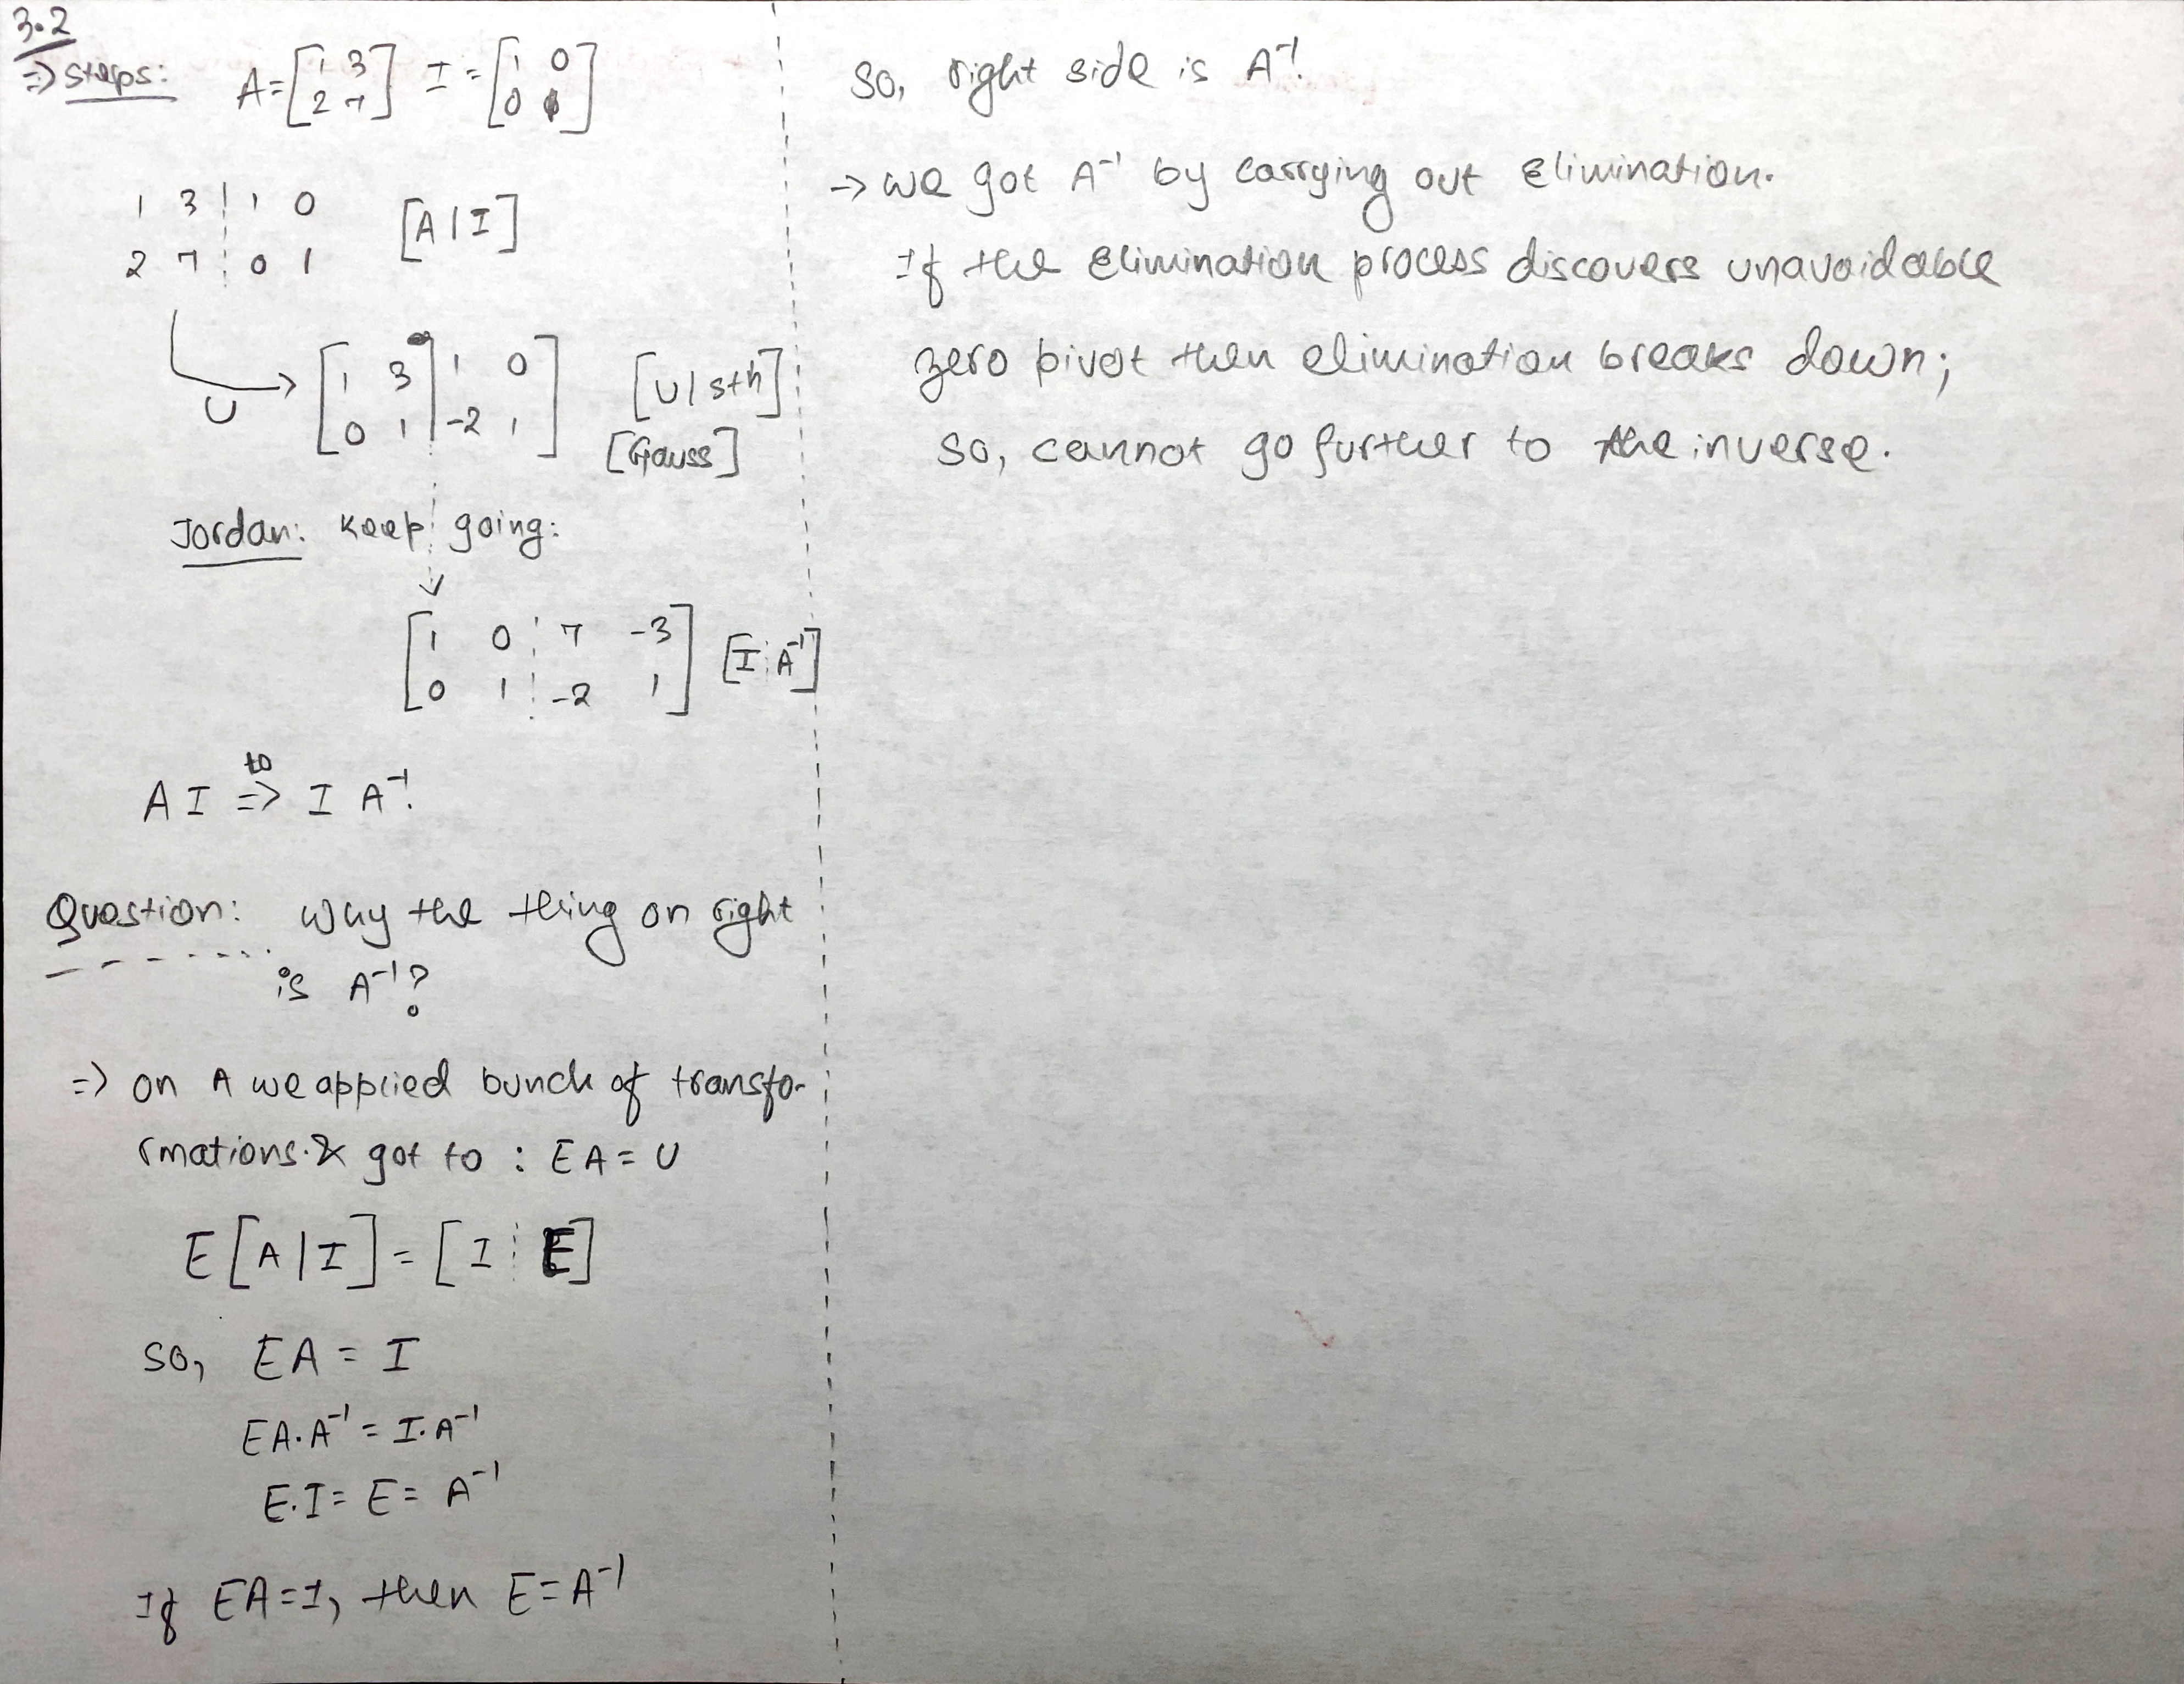 3.2
=> steps: A = [1 3 I = [1 0
2 7] 0 1]
1 3 | 1 0 [A | I]
2 7 | 0 1
U → [1 3 | 1 0 [U | sth]
0 1 | -2 1] [Gauss]
Jordan: Keep going:
[1 0 | 7 -3 [I | A⁻¹]
0 1 | -2 1]
to
A I => I A⁻¹.
Question: why the thing on right
is A⁻¹?
=> on A we applied bunch of transfo-
rmations. & got to : EA = U
E [A | I] = [I | E]
so, EA = I
EA·A⁻¹ = I·A⁻¹
E·I = E = A⁻¹
If EA = I, then E = A⁻¹
So, right side is A⁻¹.
-> we got A⁻¹ by carrying out elimination.
If the elimination process discovers unavoidable
zero pivot then elimination breaks down;
so, cannot go further to the inverse.